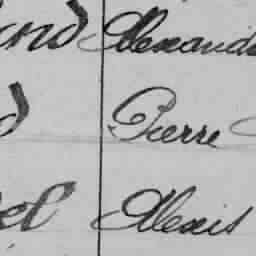 and Alexand
d Pierre
el Alexis